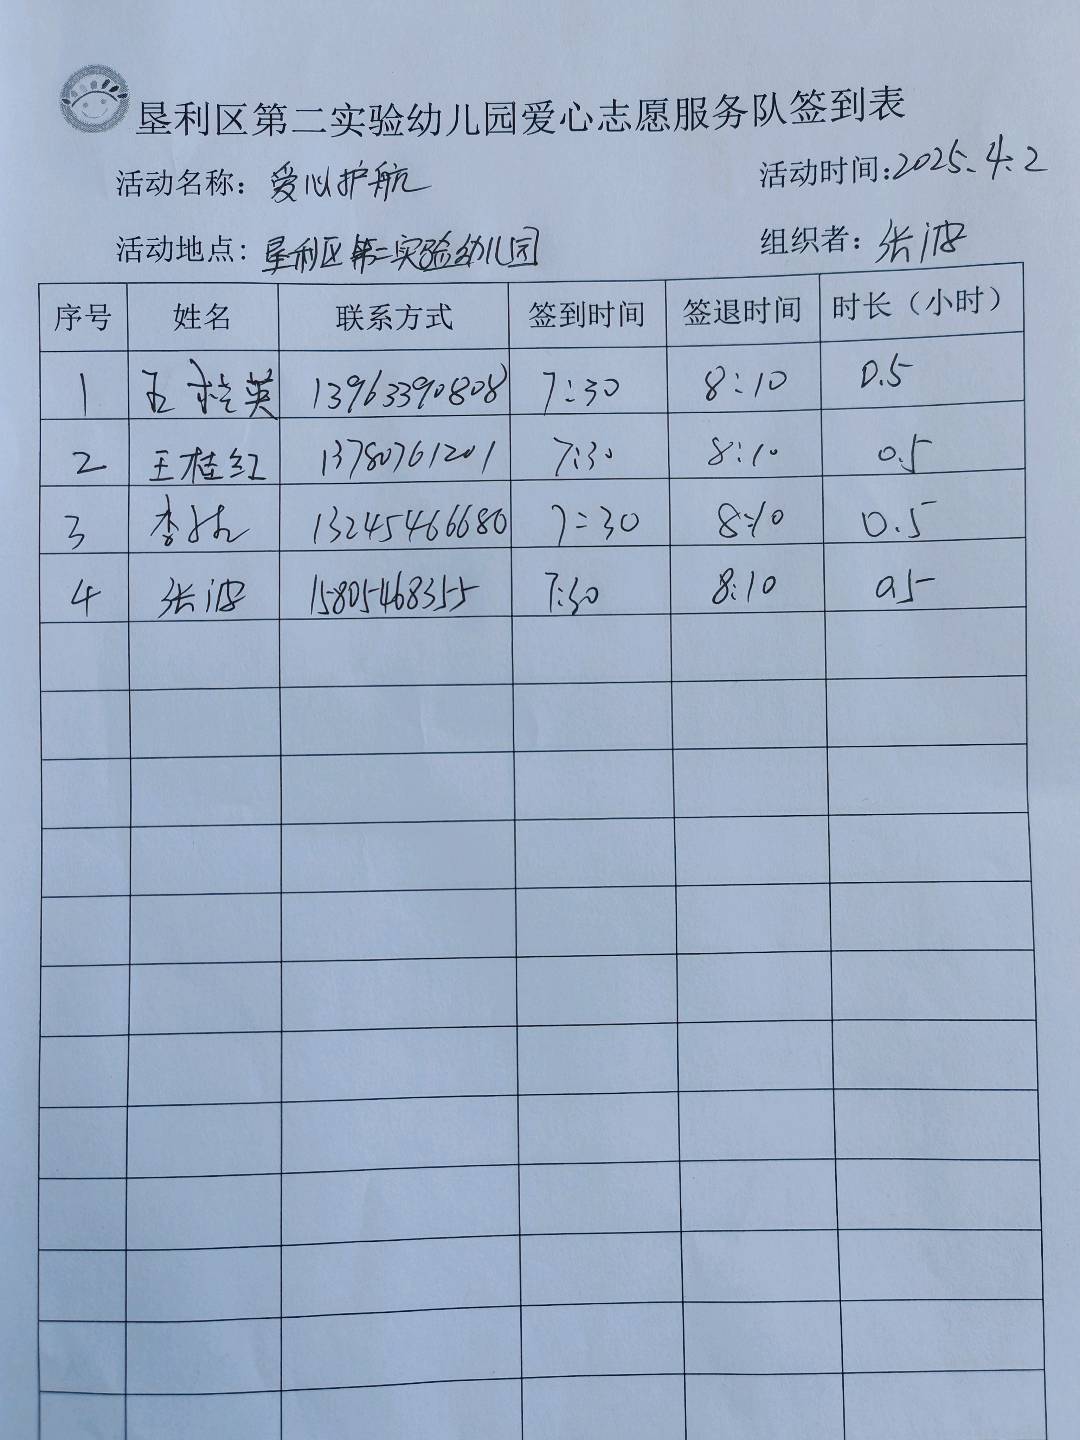 垦利区第二实验幼儿园爱心志愿服务队签到表
活动名称：爱心护航 活动时间：2025.4.2
活动地点：垦利区第二实验幼儿园 组织者：张波
序号 姓名 联系方式 签到时间 签退时间 时长（小时）
1 王 英 13963390808 7:30 8:10 0.5
2 王桂红 13780761201 7:30 8:10 0.5
3 李 13245466680 7:30 8:10 0.5
4 张波 15805468355 7:30 8:10 0.5